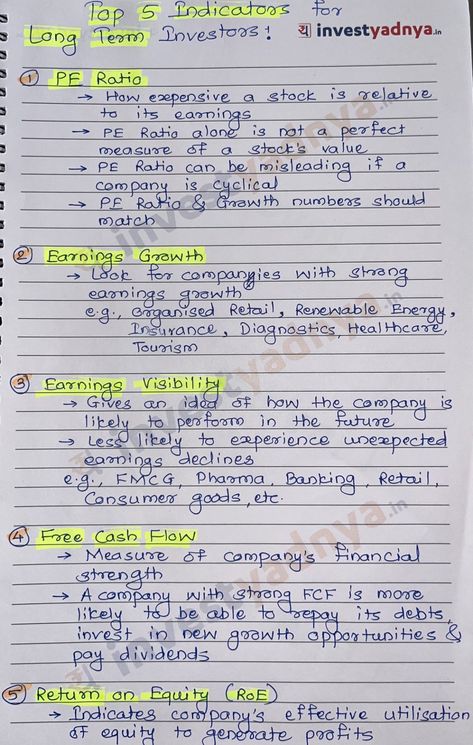 Top 5 Indicators for
Long Term Investors!
investyadnya.in
1 PE Ratio
→ How expensive a stock is relative
to its earnings
→ PE Ratio alone is not a perfect
measure of a stock's value
→ PE Ratio can be misleading if a
company is cyclical
→ PE Ratio & Growth numbers should
match
2 Earnings Growth
→ Look for companies with strong
earnings growth
e.g., Organised Retail, Renewable Energy,
Insurance, Diagnostics, Healthcare,
Tourism
3 Earnings Visibility
→ Gives an idea of how the company is
likely to perform in the future
→ Less likely to experience unexpected
earnings declines
e.g., FMCG, Pharma, Banking, Retail,
Consumer goods, etc.
4 Free Cash Flow
→ Measure of company's financial
strength
→ A company with strong FCF is more
likely to be able to repay its debts,
invest in new growth opportunities &
pay dividends
5 Return on Equity (RoE)
→ Indicates company's effective utilisation
of equity to generate profits